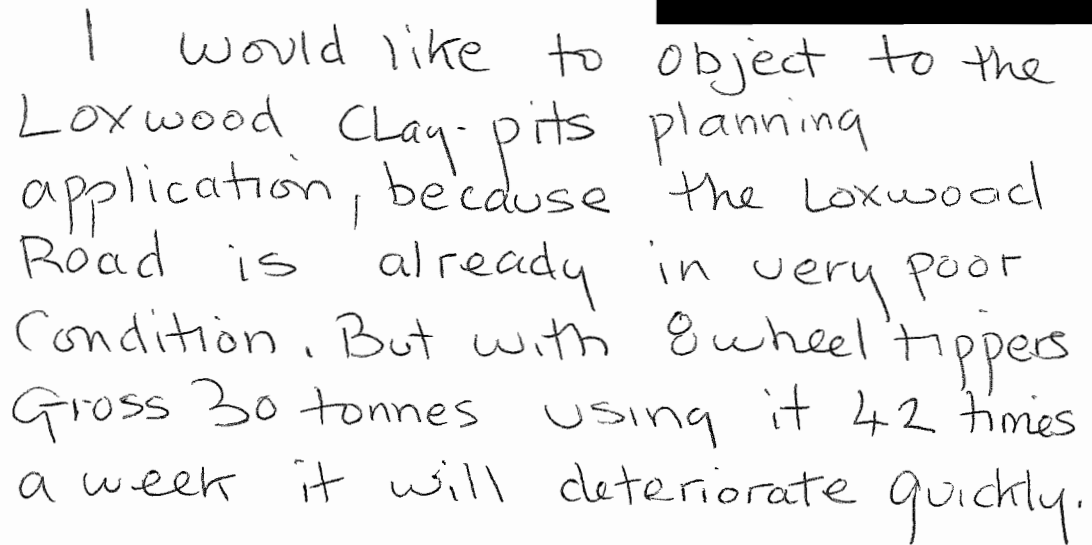 I would like to object to the
Loxwood Clay-pits planning
application, because the Loxwood
Road is already in very poor
Condition. But with 8 wheel tippers
Gross 30 tonnes using it 42 times
a week it will deteriorate quickly.